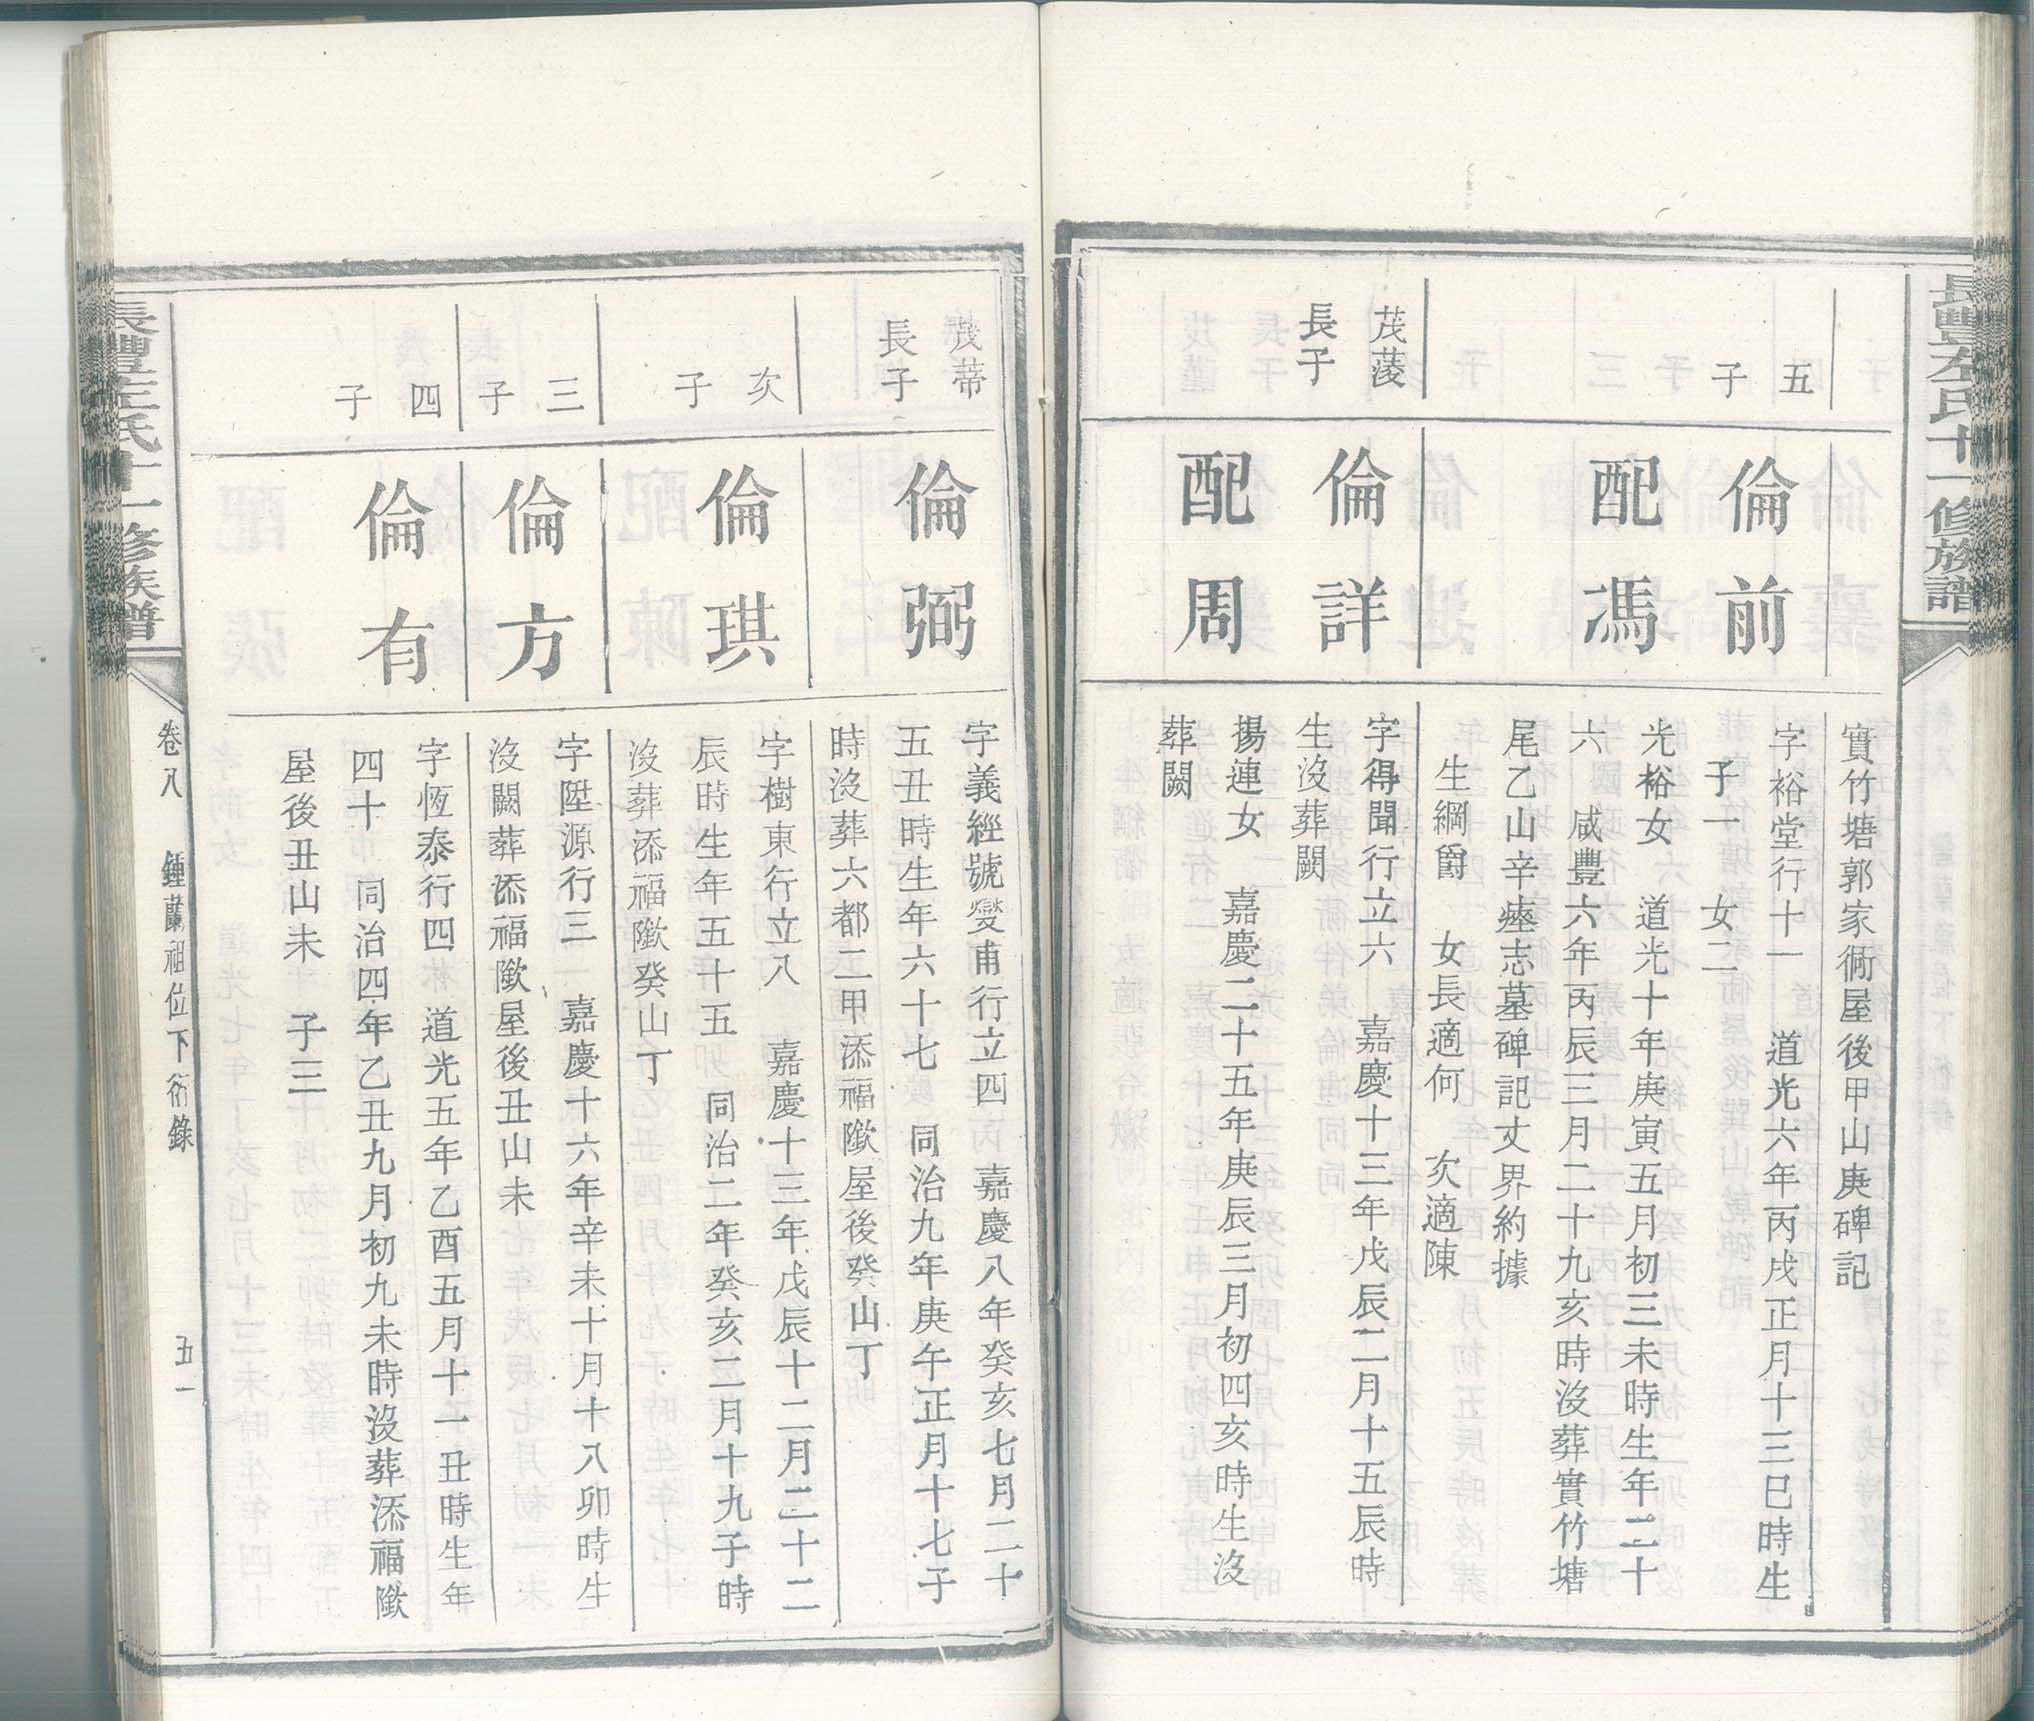 長豐左氏十一修族譜
實竹塘郭家衕屋後甲山庚碑記
五
子
倫前
字裕堂行十一　道光六年丙戌正月十三巳時生
子一　女二
配馮
光裕女　道光十年庚寅五月初三未時生年二十
六　咸豐六年丙辰三月二十九亥時沒葬實竹塘
尾乙山辛塟志墓碑記丈界約據
生綱爵　女長適何　次適陳
茂菱
長子
倫詳
字得聞行立六　嘉慶十三年戊辰二月十五辰時
生沒葬闕
配周
揚連女　嘉慶二十五年庚辰三月初四亥時生沒
葬闕
茂蒂
長子
倫弼
字義經號燮甫行立四　嘉慶八年癸亥七月二十
五丑時生年六十七　同治九年庚午正月十七子
時沒葬六都二甲添福隞屋後癸山丁
次
子
倫琪
字樹東行立八　嘉慶十三年戊辰十二月二十二
辰時生年五十五　同治二年癸亥二月十九子時
沒葬添福隞癸山丁
三
子
倫方
字陞源行三　嘉慶十六年辛未十月十八卯時生
沒闕葬添福隞屋後丑山未
四
子
倫有
字恆泰行四　道光五年乙酉五月十一丑時生年
四十　同治四年乙丑九月初九未時沒葬添福隞
屋後丑山未　子三
長豐左氏十一修族譜
卷八　鍾蘭祖位下衍錄　五一